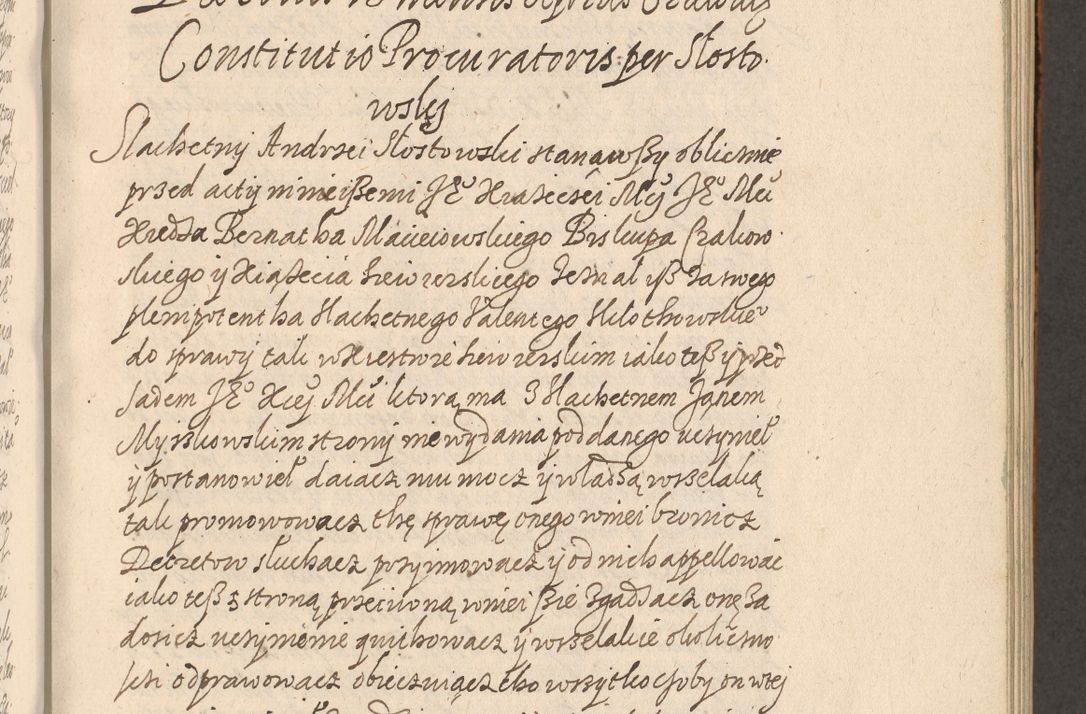 Constitutio Procuratoris per Słosto
wskj
Slachetny Andrzei Słostowski stanąwszy oblicznie
przed acty ninieißemi JE° Xiążeczei Mcj JE° Mci
Xiedza Bernatha Macieiowskiego Biskupa Crakow
skiego ÿ Xiążecia Siewierskiego zeznal yß za swego
plenipotentha slachetnego Valentego Hilothowskie°
do sprawÿ tak w Xiestwie Siewierskim iako teß ÿ przed
sadem JE° Xcej Mci ktorą ma z Slachetnem Janem
Myszkowskim stronÿ niewydania poddanego uczynieł
ÿ postanowieł daiacz mu mocz ÿ władzą wszelaką
tak promowowacz thę sprawę onego wniei bronicz
Decretow słuchacz przyimowacz ÿ od nich appellowac
iako teß z stroną przeciwną wniei ßie zgadzacz onę za
dosicz uczynienie quithowacz ÿ wszelakie okoliczno
sczi odprawowacz obieczuiącz tho wszytko czoby on wtej